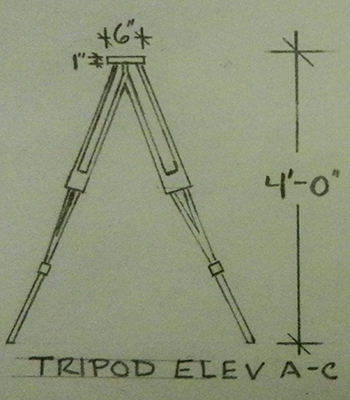 6"
1"
4'-0"
TRIPOD ELEV A-C